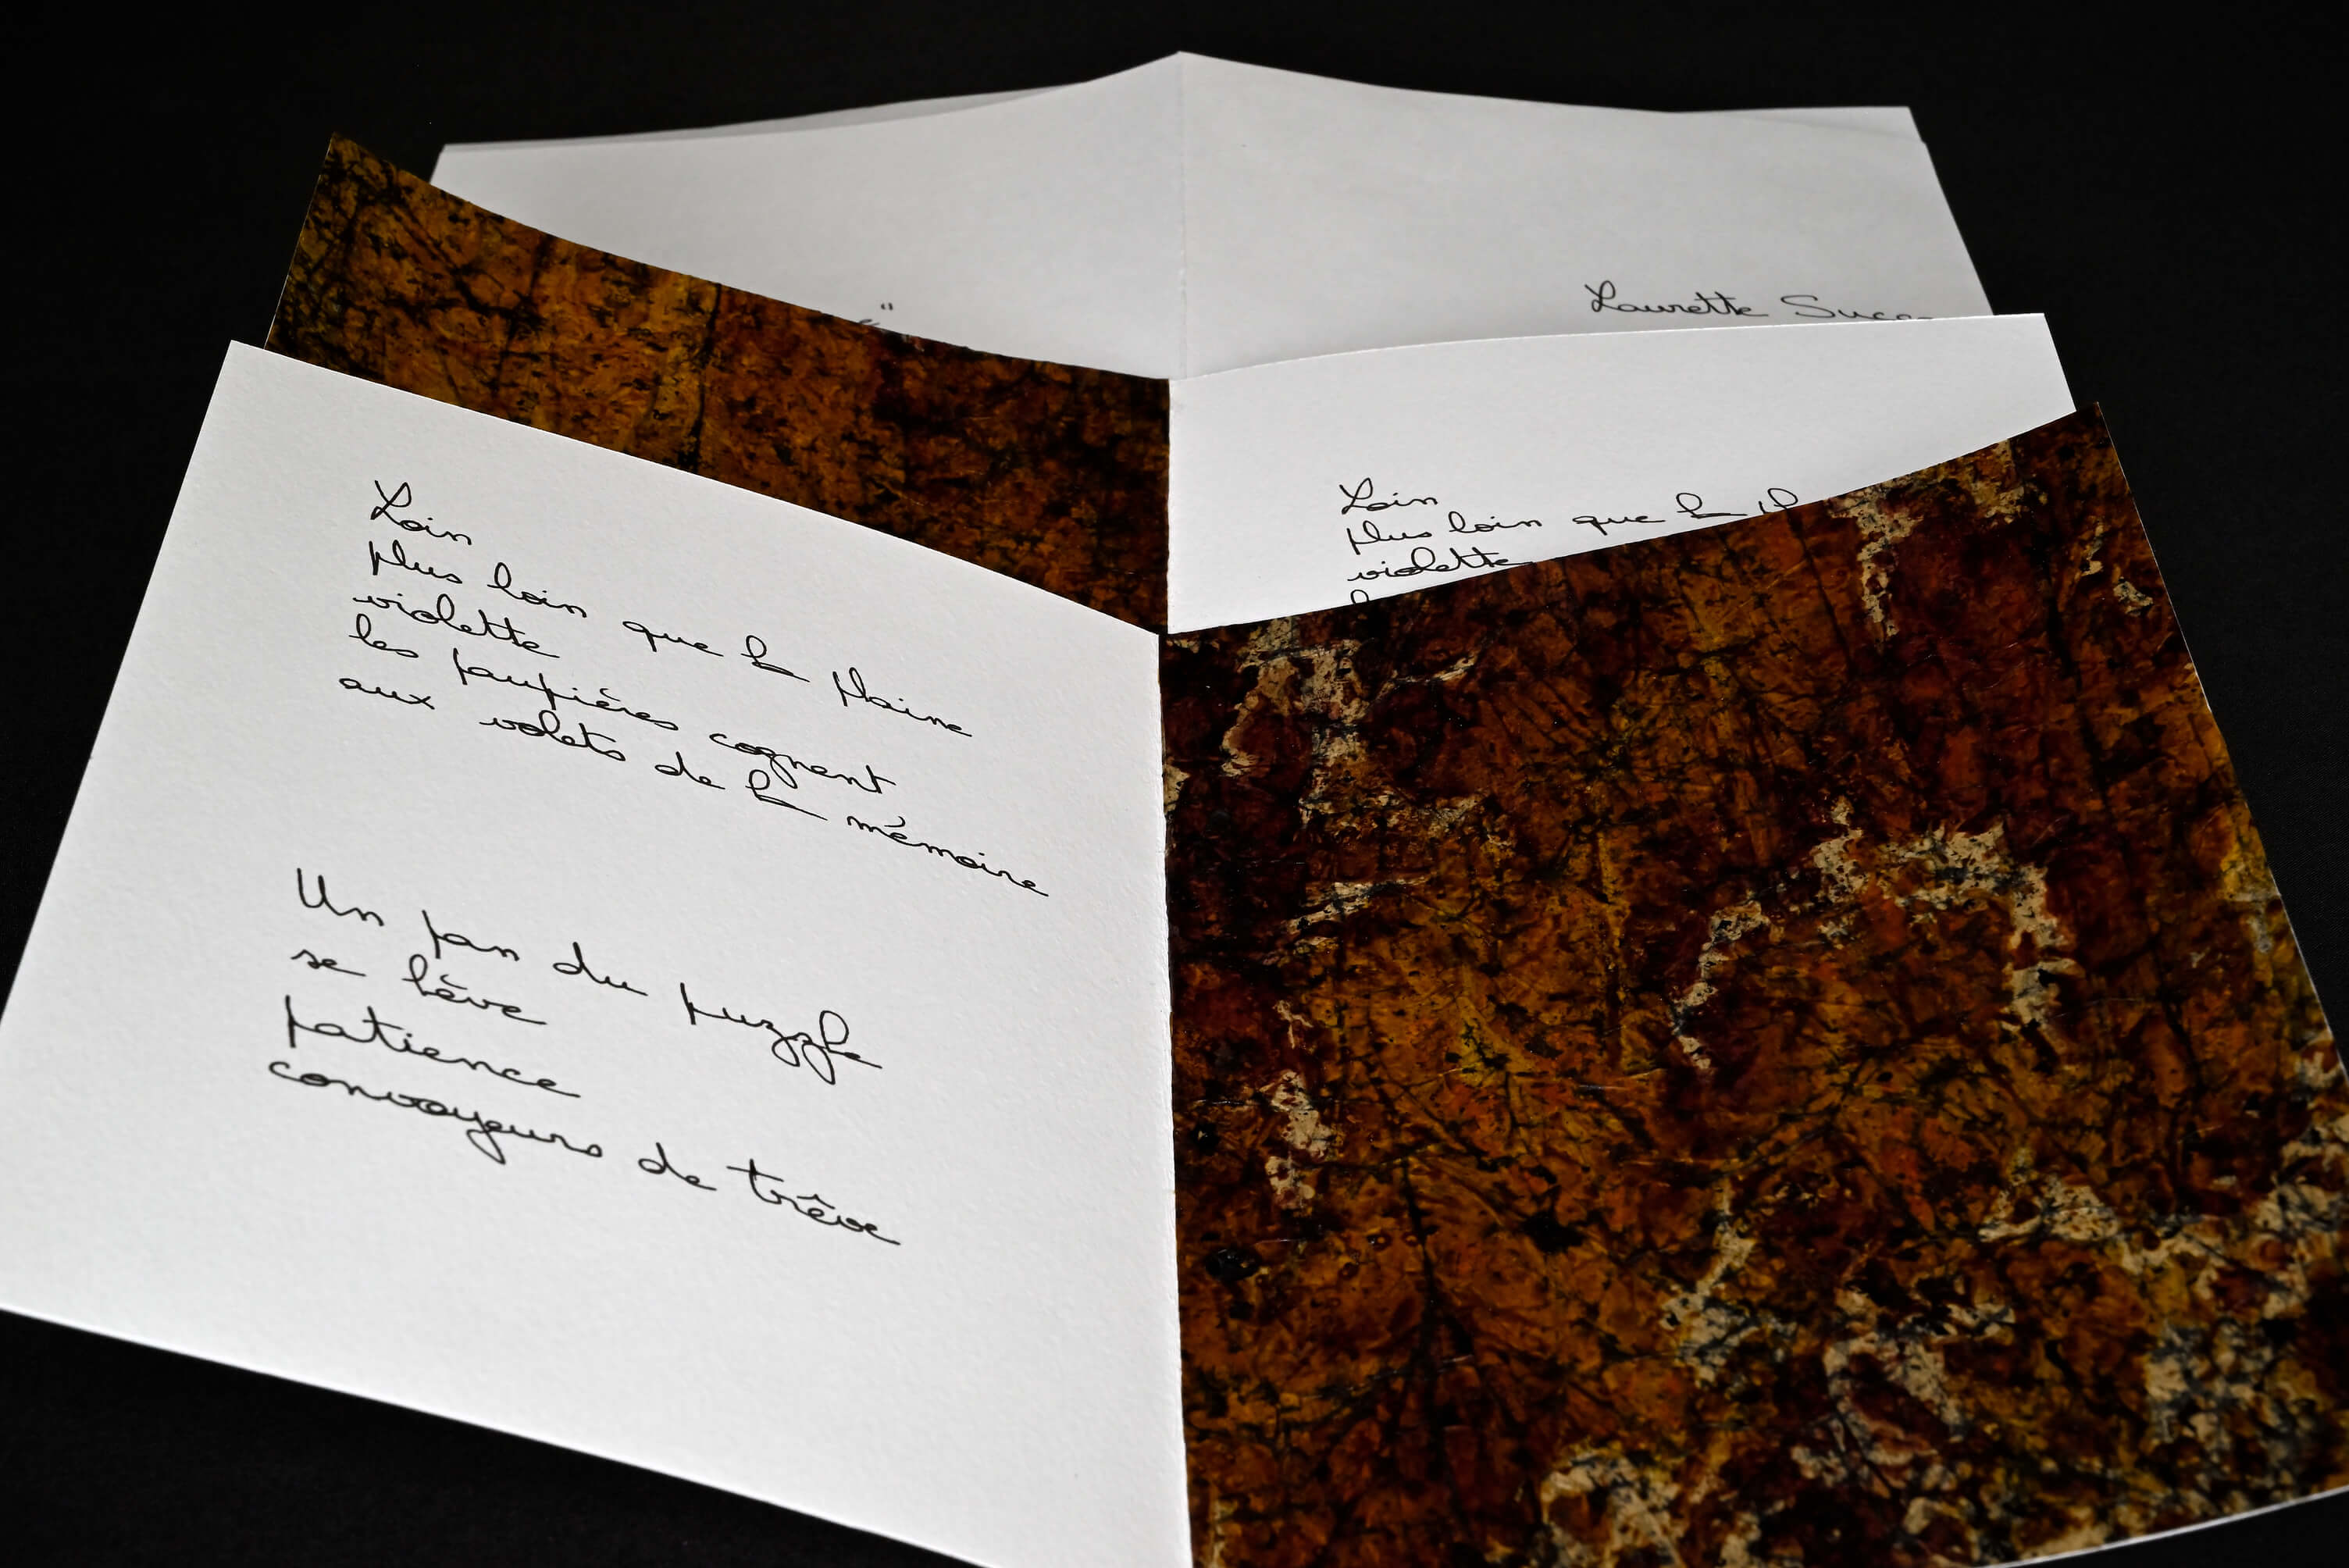 Laurette
Loin
plus loin que la
violette
Loin
plus loin que la plaine
violette
les paupières cognent
aux volets de la mémoire
Un pan du puzzle
se lève
patience
convoyeurs de trêve